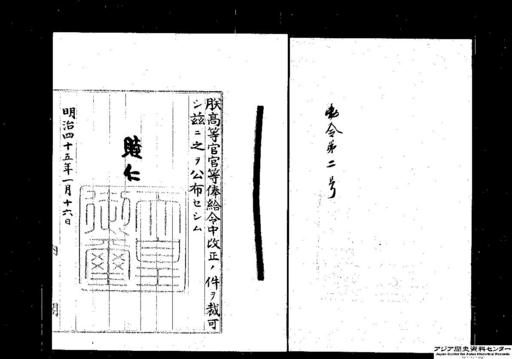 勅令第二号
朕高等官官等俸給令中改正ノ件ヲ裁可
シ茲ニ之ヲ公布セシム
睦仁
天皇御璽
明治四十五年一月十六日
内閣
アジア歴史資料センター
Japan Center for Asian Historical Records